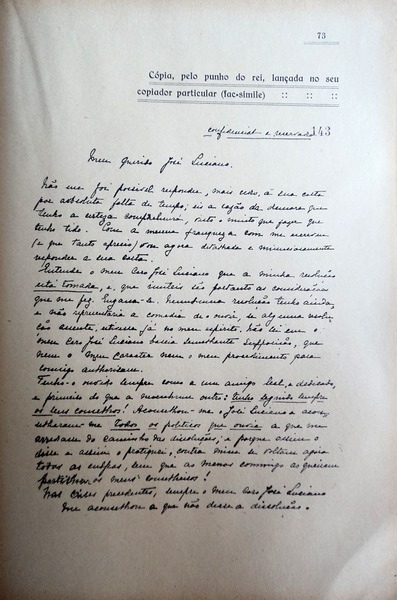 73
Cópia, pelo punho do rei, lançada no seu
copiador particular (fac-simile) :: :: ::
confidencial e reservada 143
Meu Querido José Luciano.
Não me foi possivel responder, mais cedo, á sua carta
por absoluta falta de tempo; eis a razão da demora que
tenho a certeza comprehenderá, visto o muito que faço que
tenho tido. Com a mesma franqueza com me escreveu
(e que tanto aprecio) vou agora detalhada e minuciosamente
responder á sua carta.
Entende o meu Caro José Luciano que a minha resolução
está tomada, e, que inuteis são portanto as considerações
que me fez. Engana-se. Nenhuma resolução tenho ainda,
e não representaria a comedia de o ouvir, se alguma resolu-
ção assente, estivesse já no meu espirito. Não sei em o
meu Caro José Luciano basea semelhante supposição, que
nem o meu Caracter nem o meu procedimento para
comsigo authorisam.
Tenho-o ouvido sempre como a um amigo leal, e dedicado,
e primeiro do que a nenhum outro: tenho seguido sempre
os seus conselhos! Aconselhou-me o José Luciano e acon-
selharam-me todos os politicos que ouvia a que me
arredasse do caminho das dissoluções; e porque assim o
disse e assim o pratiquei, contra mim se voltam agora
todas as culpas, sem que ao menos commigo as queiram
partilhar os meus conselheiros!
Nas Crises precedentes, sempre o meu Caro José Luciano
me aconselhou a que não désse a dissolução.